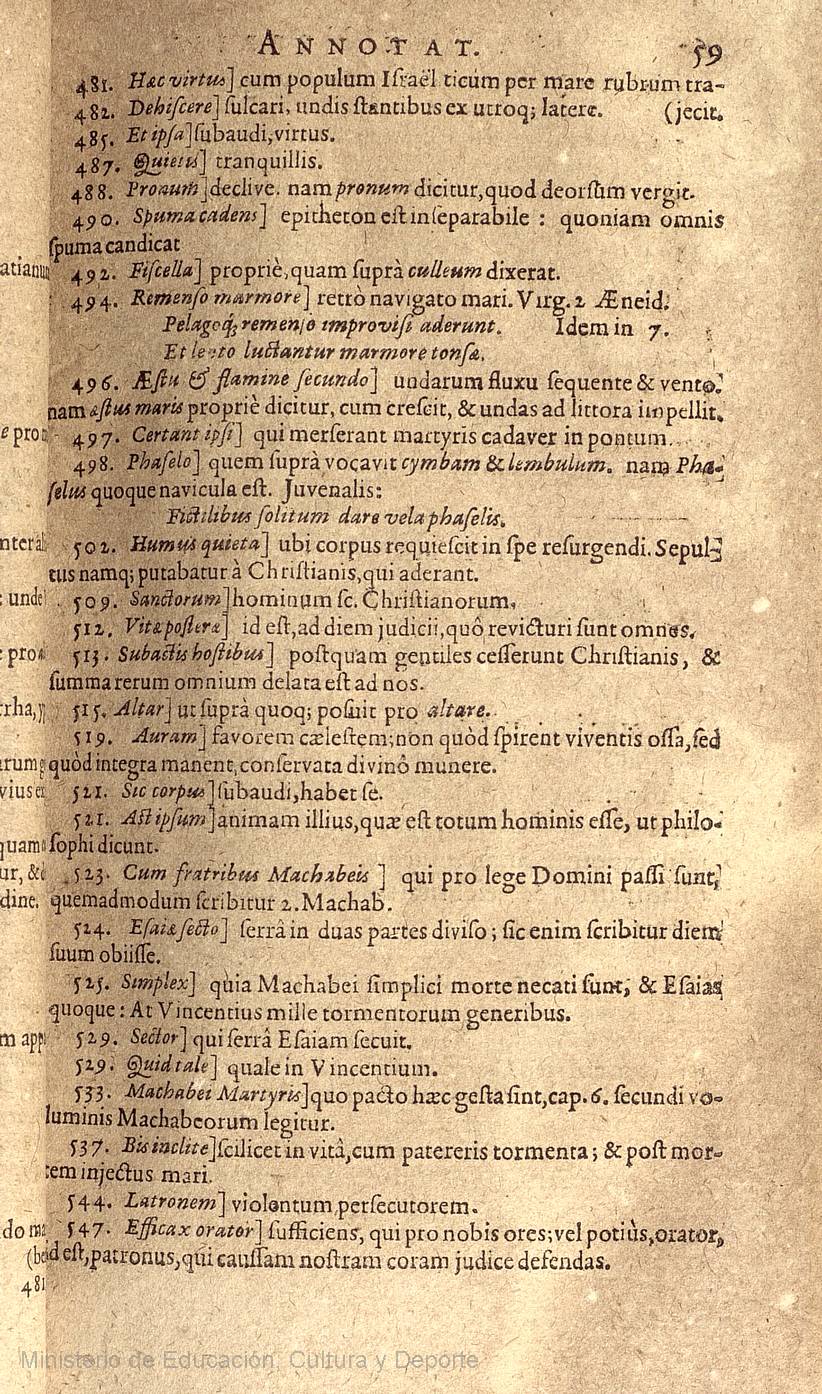 ANNOTAT. 59
481. Hæc virtus] cum populum Iſraël ticum per mare rubrum tra-
482. Dehiſcere] ſulcari, undis ſtantibus ex utroq; latere. (jecit.
485. Et ipſa] ſubaudi, virtus.
487. Quietis] tranquillis.
488. Pronum] declive. nam pronum dicitur, quod deorſum vergit.
490. Spuma cadens] epitheton eſt inſeparabile : quoniam omnis
ſpuma candicat
492. Fiſcella] propriè, quam ſuprà culleum dixerat.
494. Remenſo marmore] retrò navigato mari. Virg. 2 Æneid.
Pelagoq; remenſo improviſi aderunt. Idem in 7.
Et lento luctantur marmore tonſæ.
496. Æſtu & flamine ſecundo] undarum fluxu ſequente & vento.
nam æſtus maris propriè dicitur, cum creſcit, & undas ad littora impellit.
497. Certant ipſi] qui merſerant martyris cadaver in pontum.
498. Phaſelo] quem ſuprà vocavit cymbam & lembulum. nam Pha-
ſelus quoque navicula eſt. Juvenalis:
Fictilibus ſolitum dare vela phaſelis.
502. Humus quieta] ubi corpus requieſcit in ſpe reſurgendi. Sepul-
tus namq; putabatur à Chriſtianis, qui aderant.
509. Sanctorum] hominum ſc. Chriſtianorum.
512. Vitæ poſteræ] id eſt, ad diem judicii, quô revicturi ſunt omnes.
513. Subactis hoſtibus] poſtquam gentiles ceſſerunt Chriſtianis, &
ſumma rerum omnium delata eſt ad nos.
515. Altar] ut ſuprà quoq; poſuit pro altare.
519. Auram] favorem cæleſtem; non quòd ſpirent viventis oſſa, ſed
quòd integra manent, conſervata divinô munere.
521. Sic corpus] ſubaudi, habet ſe.
521. Aſt ipſum] animam illius, quæ eſt totum hominis eſſe, ut philo-
ſophi dicunt.
523. Cum fratribus Machabeis ] qui pro lege Domini paſſi ſunt,
quemadmodum ſcribitur 2. Machab.
524. Eſaiæ ſecto] ſerrâ in duas partes diviſo ; ſic enim ſcribitur diem
ſuum obiiſſe.
525. Simplex] quia Machabei ſimplici morte necati ſunt, & Eſaias
quoque : At Vincentius mille tormentorum generibus.
529. Sector] qui ſerrâ Eſaiam ſecuit.
529. Quid tale] quale in Vincentium.
533. Machabei Martyris] quo pacto hæc geſta ſint, cap. 6. ſecundi vo-
luminis Machabeorum legitur.
537. Bis inclite] ſcilicet in vitâ, cum patereris tormenta ; & poſt mor-
tem injectus mari.
544. Latronem] violentum perſecutorem.
547. Efficax orator] ſufficiens, qui pro nobis ores; vel potiùs, orator,
id eſt, patronus, qui cauſſam noſtram coram judice defendas.
481
Ministerio de Educación, Cultura y Deporte